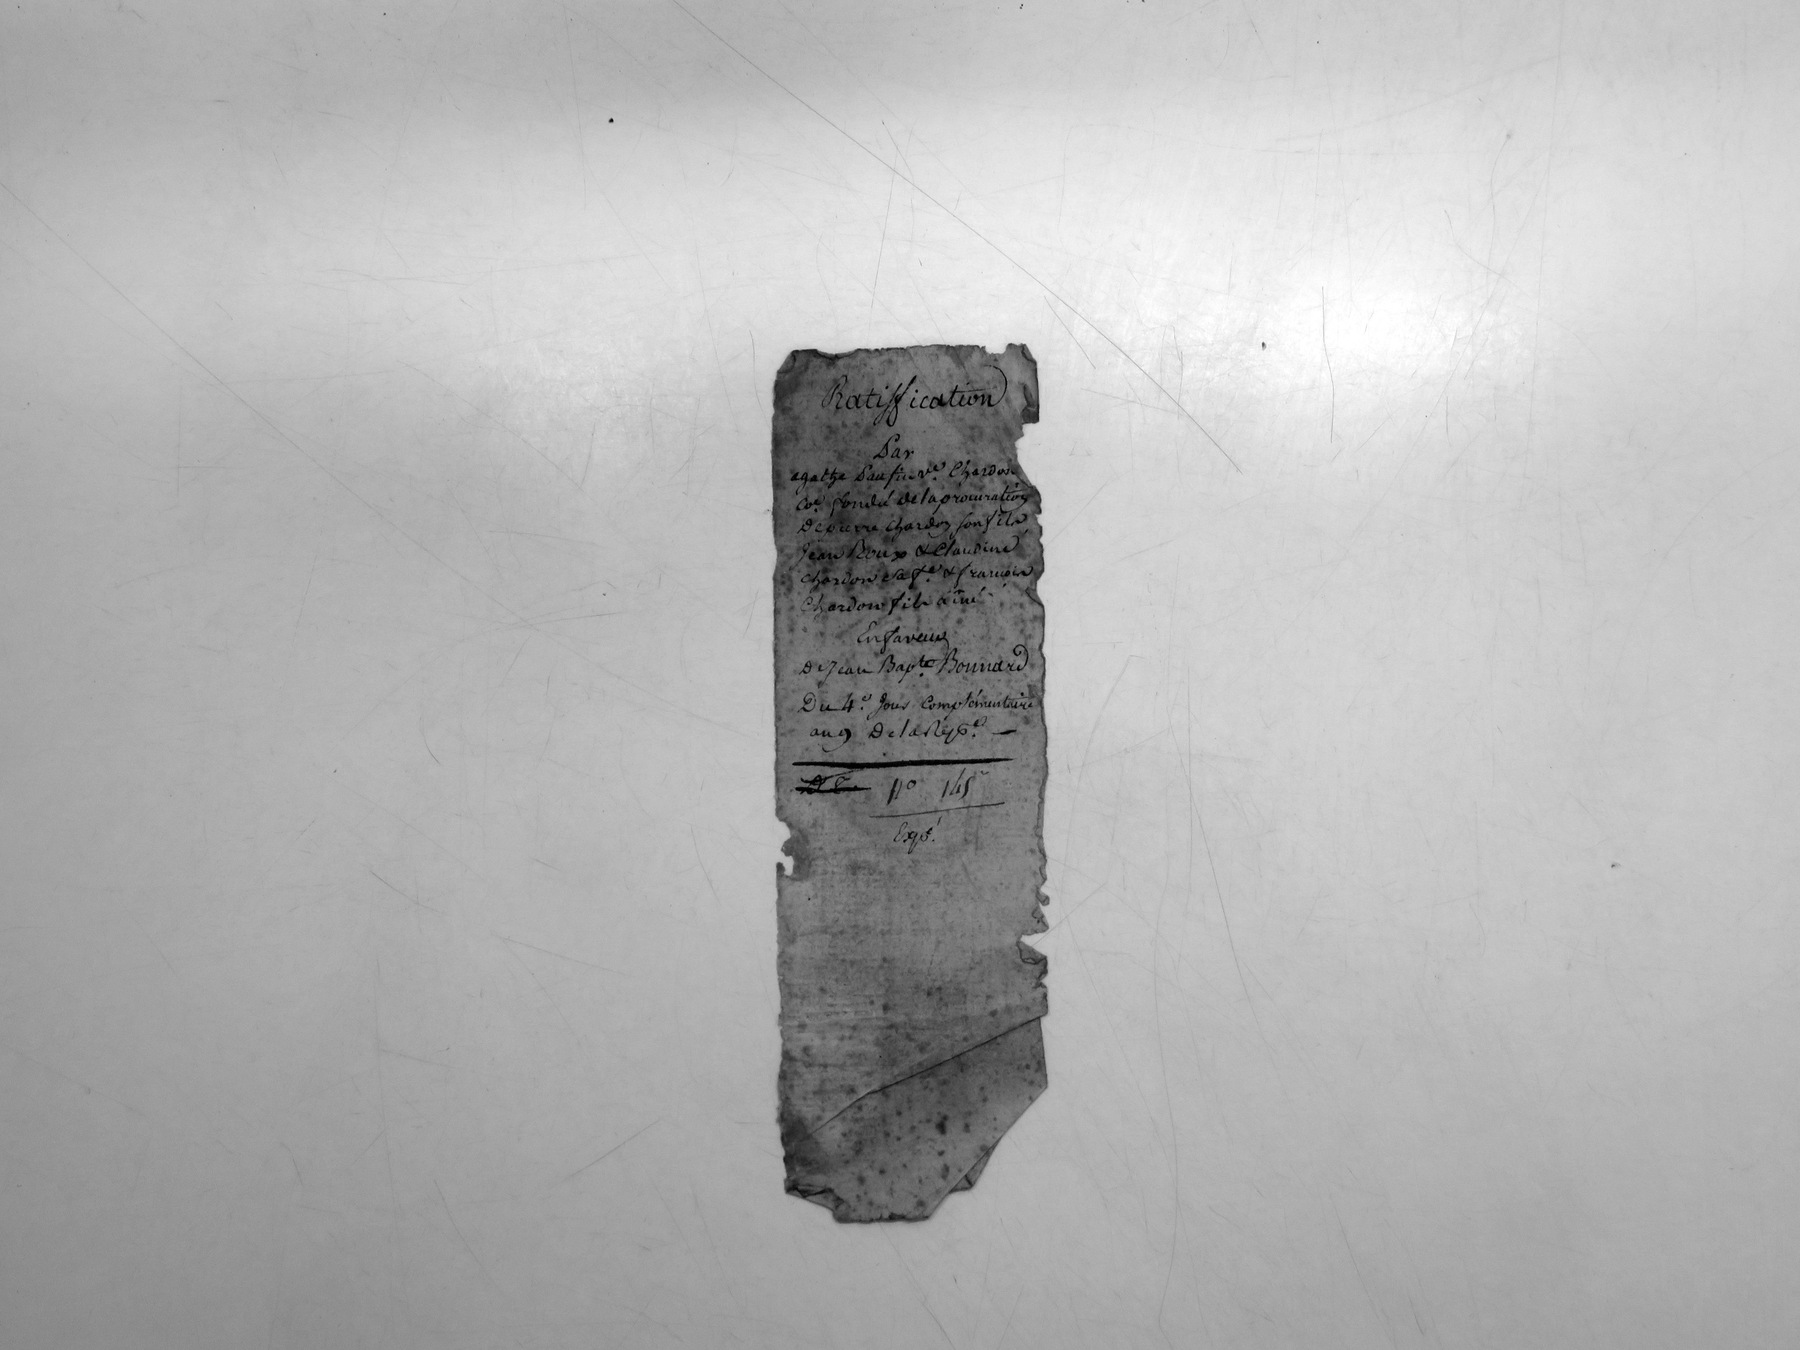 Ratiffication
Par
agathe v.e Chardon
Co.e fondé de la procuration
De pierre Chardon son fils
Jean Roux & Claudine
Chardon sa f.e & françois
Chardon fils aîné
En faveur
De Jean Bap.te Bonnard
Du 4.e Jour Complémentaire
an 9 De la Rep.e
N.o 145
Exp.é